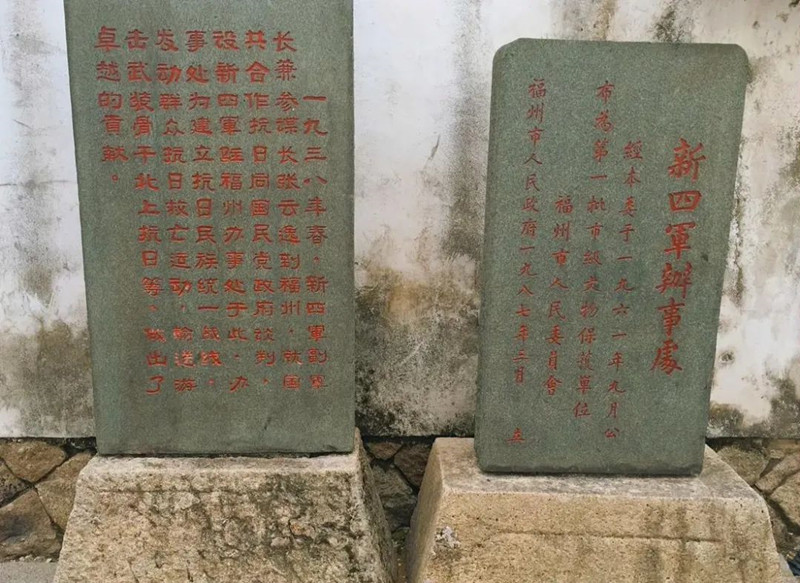 新四軍辦事處
經本委于一九六一年九月公
布為第一批市級文物保護單位
福州市人民委員會
福州市人民政府一九八七年三月 立
一九三八年春，新四軍副軍
长兼参谋长张云逸到福州，就国
共合作抗日同国民党政府谈判，
设新四軍驻福州办事处于此，办
事处为建立抗日民族统一战线，
发动群众抗日救亡运动，输送游
击武装骨干北上抗日等，做出了
卓越的貢献。